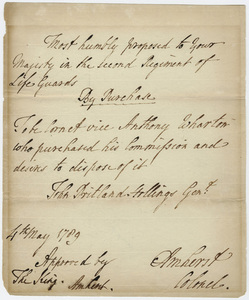 Most humbly proposed to Your
Majesty in the second Regiment of
Life Guards
By Purchase
To be Cornet vice Anthony Wharton
who purchased his Commission and
desires to dispose of it
John Hollings Gent.
4th May 1789
Approved by
The King. Amherst.
Amherst
Colonel.